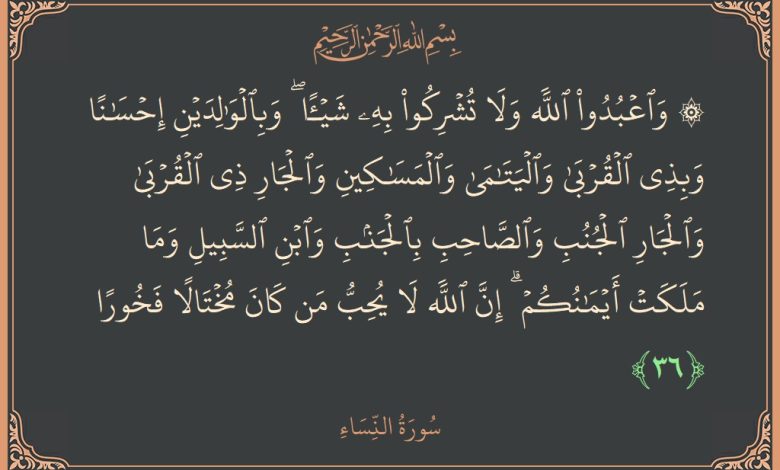 بِسْمِ اللَّهِ الرَّحْمَٰنِ الرَّحِيمِ
۞ وَٱعْبُدُوا۟ ٱللَّهَ وَلَا تُشْرِكُوا۟ بِهِۦ شَيْـًٔا ۖ وَبِٱلْوَٰلِدَيْنِ إِحْسَـٰنًا
وَبِذِى ٱلْقُرْبَىٰ وَٱلْيَتَـٰمَىٰ وَٱلْمَسَـٰكِينِ وَٱلْجَارِ ذِى ٱلْقُرْبَىٰ
وَٱلْجَارِ ٱلْجُنُبِ وَٱلصَّاحِبِ بِٱلْجَنۢبِ وَٱبْنِ ٱلسَّبِيلِ وَمَا
مَلَكَتْ أَيْمَـٰنُكُمْ ۗ إِنَّ ٱللَّهَ لَا يُحِبُّ مَن كَانَ مُخْتَالًا فَخُورًا
﴿٣٦﴾
سُورَةُ النِّسَاءِ